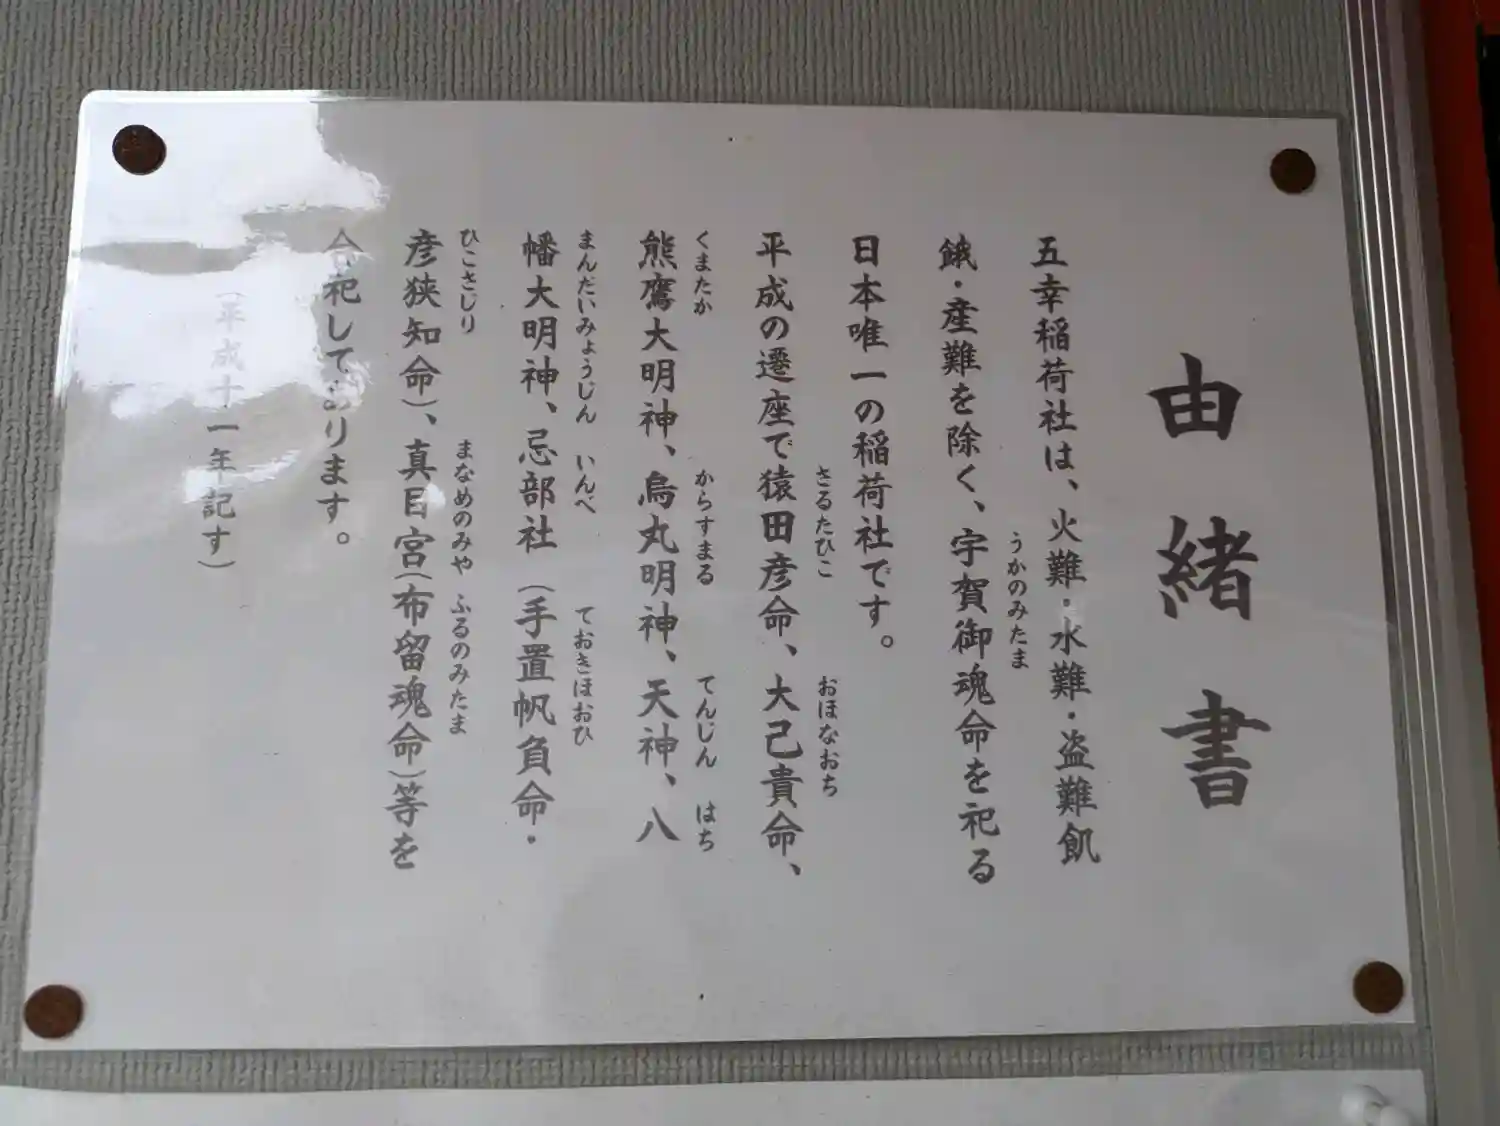 由緒書
五幸稲荷社は、火難・水難・盗難飢
餓・産難を除く、宇賀御魂命を祀る
うかのみたま
日本唯一の稲荷社です。
平成の遷座で猿田彦命、大己貴命、
さるたひこ おほなおち
熊鷹大明神、烏丸明神、天神、八
くまたか からすまる てんじん はち
幡大明神、忌部社（手置帆負命・
まんだいみょうじん いんべ ておきほおひ
彦狭知命）、真目宮（布留魂命）等を
ひこさじり まなめのみや ふるのみたま
合祀しております。
（平成十一年記す）